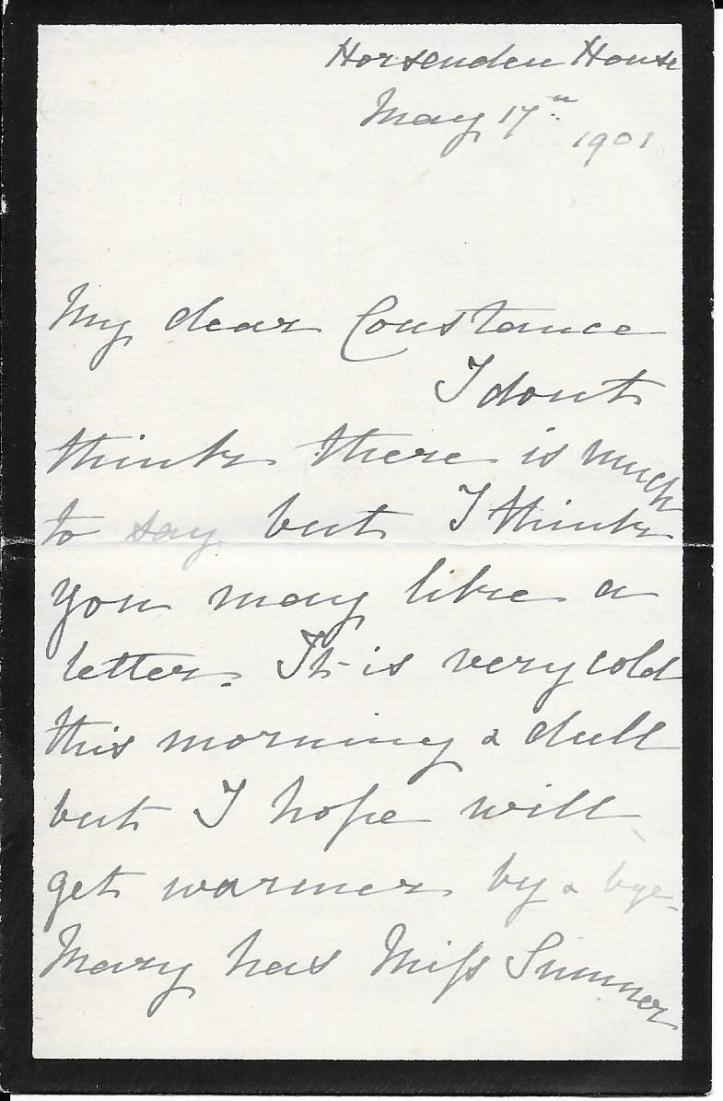 Horsenden House
May 17th
1901
My dear Constance
I dont
think there is much
to say but I think
you may like a
letter. It is very cold
this morning & dull
but I hope will
get warmer by & bye-
Mary has Miss Sumner